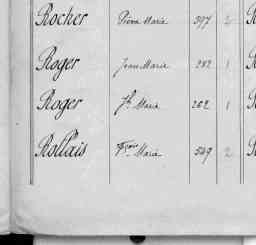 Rocher Pierre Marie 597 2
Roger Jean Marie 282 1
Roger Jh Marie 262 1
Rollais Frçois Marie 549 2